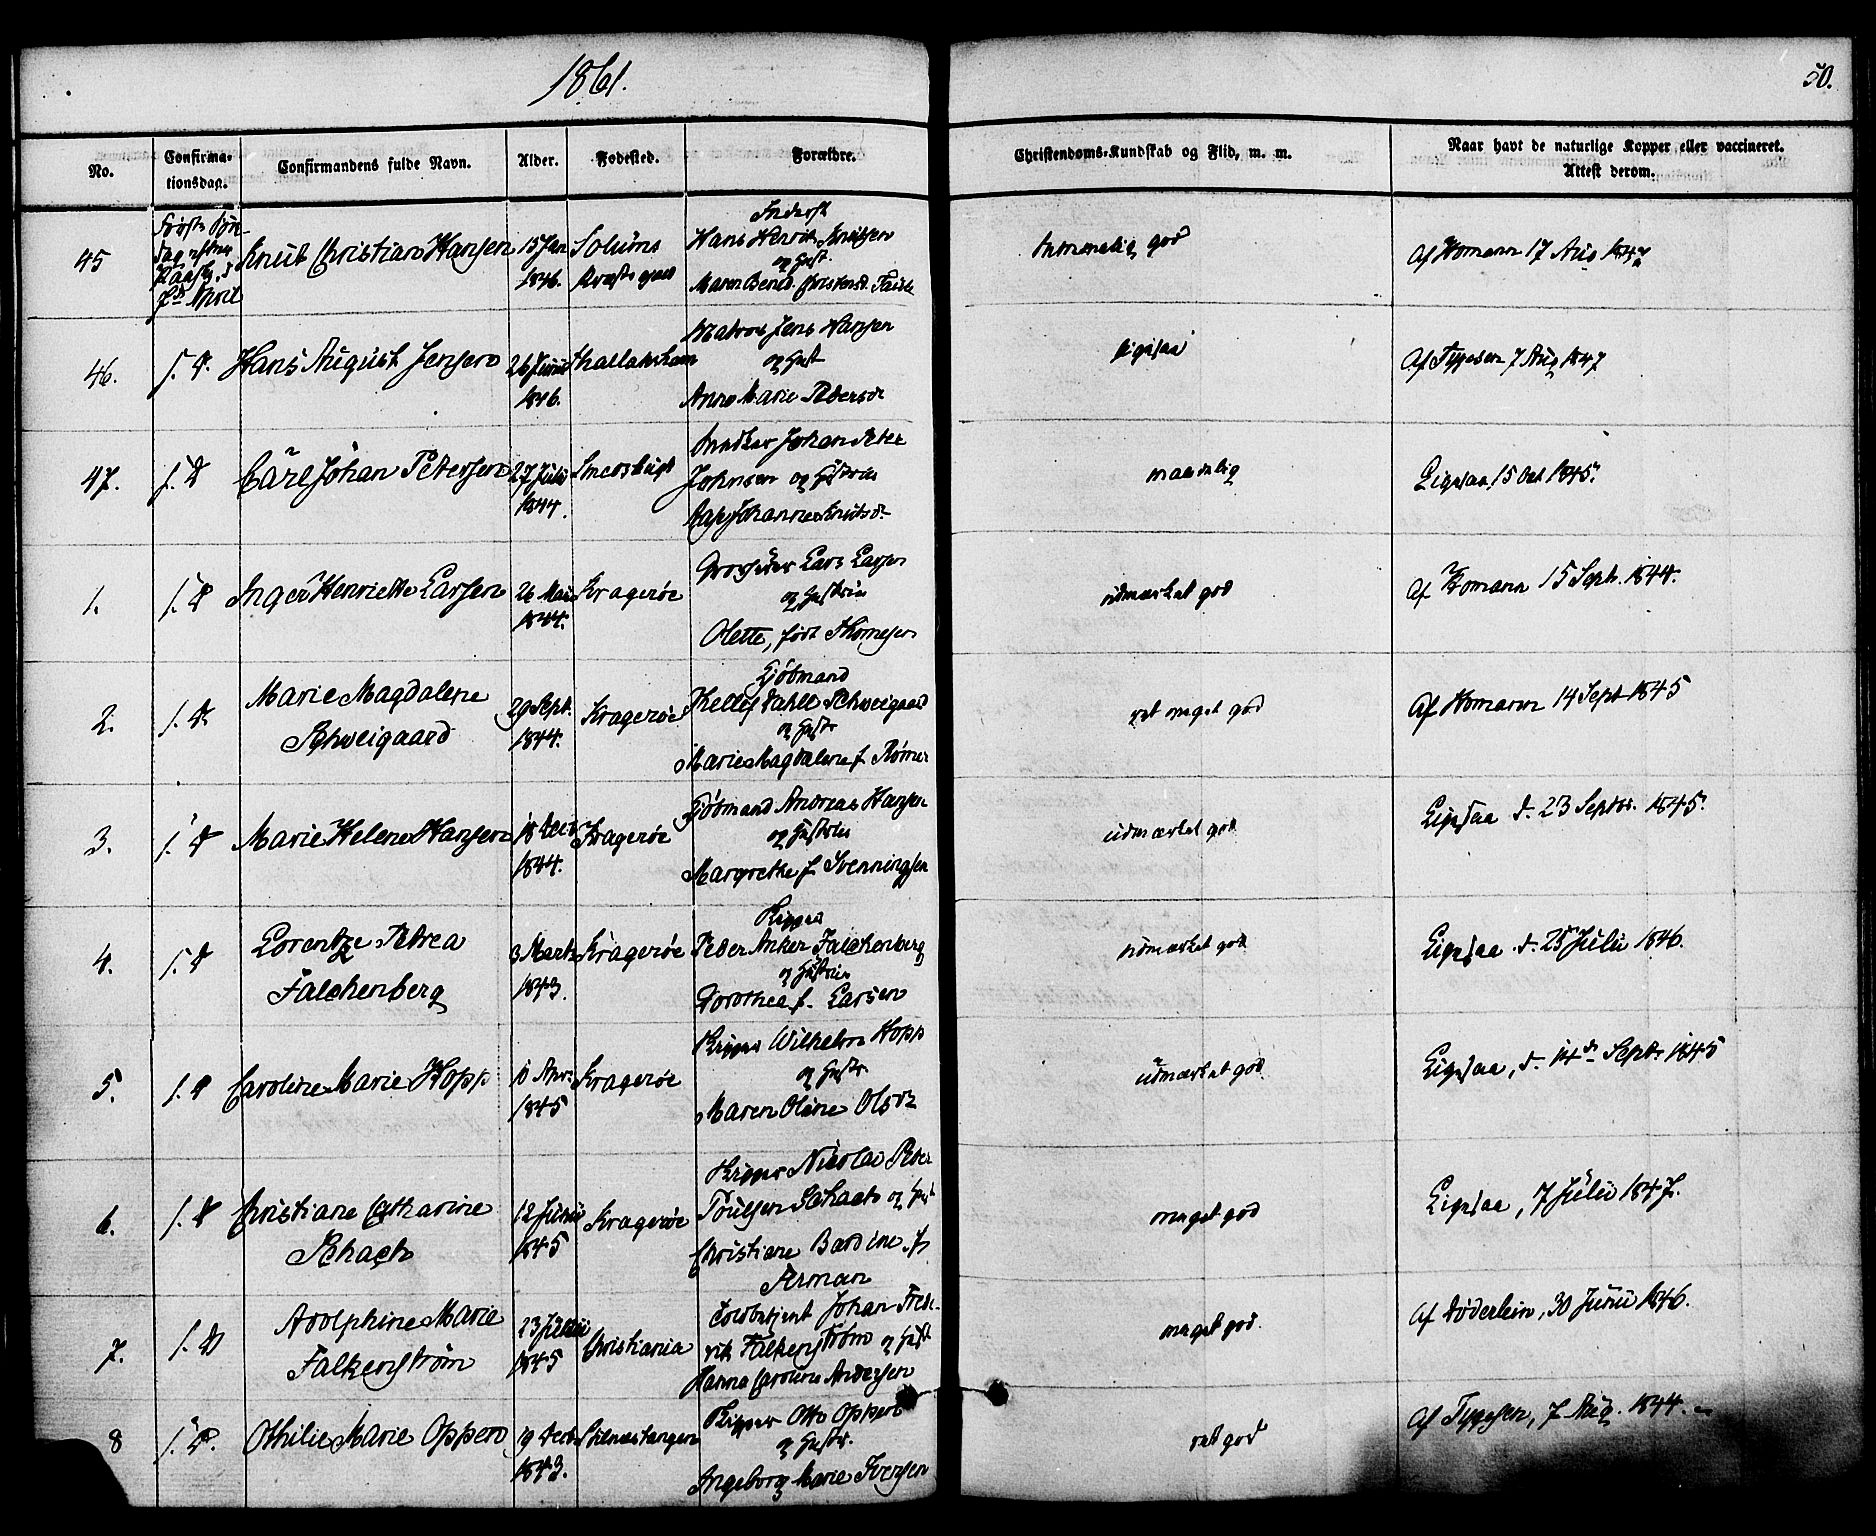 1861.
50.
No.
Confirma-
tionsdag.
Confirmandens fulde Navn.
Alder.
Fødested.
Forældre.
Christendoms-Kundskab og Flid, m. m.
Naar havt de naturlige Kopper eller vaccineret.
Attest derom.
45
Første Søn-
dag efter
Paaske,
April
Knut Christian Hansen
15 Jan
1846.
Solums
Hans Henrik Knutsen
og Hust.
Maren Bened. Christensd.
temmelig god
Af Homann 17 Aug 1847
46.
s. D.
Hans August Jensen
26 Juni
1846.
Matros Jens Hansen
og Hust
Anne Marie Pedersd.
ligesaa
Af Tygesen 7 Aug 1847
47.
s. D
Carl Johan Petersen
27 Juli
1844.
Snedker Johan Peter
Johnsen og Hustru
Johanne Knutsd.
maadelig
Ligesaa, 15 Oct 1845.
1.
s. D
Inger Henriette Larsen
26 Mai
1844.
Kragerøe
Lars Larsen
og Hustru
Olette, født Thomesen
udmærket god
Af Homann 15 Sept. 1844.
2.
s. D.
Marie Magdalene
Schweigaard
29 Sept.
1844.
Kragerøe
Kjøbmand
Kelley Dahll Schweigaard
og Hustr
Marie Magdalene f. Rømer
ret meget god
Af Homann 14 Sept 1845
3.
s. D
Marie Helene Hansen
18 Decb
1844.
Kragerøe
Kjøbmand Andreas Hansen
og Hustru
Margrethe f. Svenningsen
udmærket god
Ligesaa d. 23 Septbr. 1845.
4.
s. D
Lorentze Petrea
Falchenberg
3 Marts
1843.
Kragerøe
Skipper
Peder Anker Falchenberg
og Hustru
Dorothea f. Larsen
udmærket god
Ligesaa d. 25 Juli 1846.
5.
s. D
Caroline Marie Hopp
10 Apr.
1845
Kragerøe
Skipper Wilhelm Hopp
og Hustr.
Maren Oline Olsdr
udmærket god
Ligesaa, d. 14de Septr 1845
6.
s. D
Christiane Catharine
Schacht
12 Juni
1845
Kragerøe
Skipper Nicolai Peder
Poulsen Schacht og Hust
Christiane Bardine f.
Arman
meget god
Ligesaa, 7 Juli 1847.
7.
s. D
Adolphine Marie
Falkenstrøm
23 Juli
1845
Christiania
Toldbetjent Johan Frede-
rik Falkenstrøm og Hust
Hanna Caroline Andersen
meget god.
Af Døderlein, 30 Juni 1846.
8
s. D.
Othilie Marie Oppen
19 Decb
1843.
Stilnestangen
Skipper Otto Oppen
og Hustr.
Ingeborg Marie Iversen
ret god
Af Tygesen, 7 Aug. 1844.